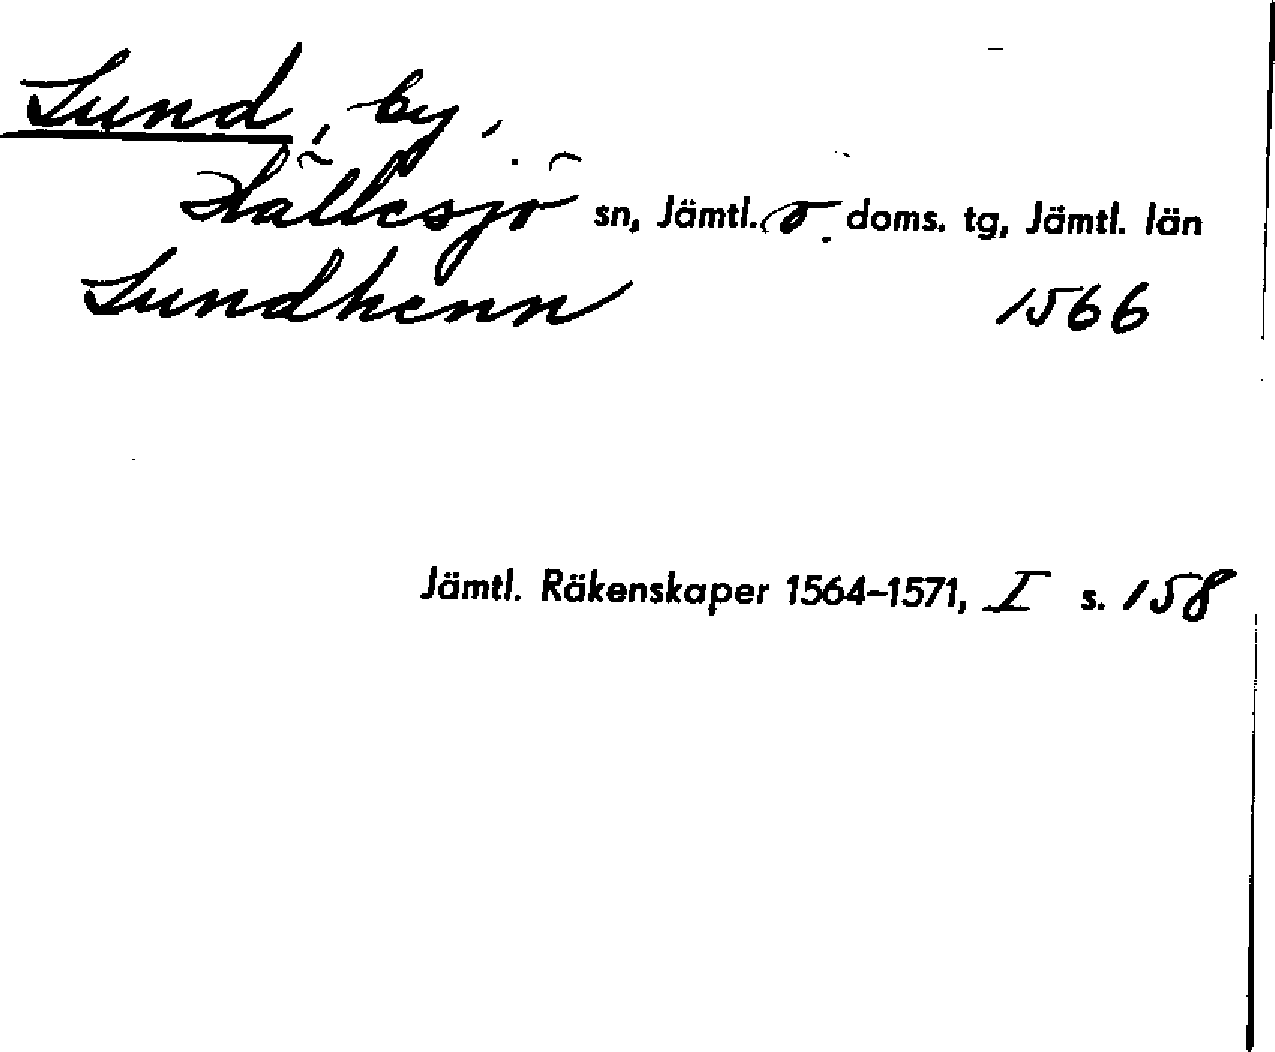 Lund, by.
Hällesjö sn, Jämtl. ö. doms. tg, Jämtl. län
Lundhenn 1566
Jämtl. Räkenskaper 1564–1571, I s. 158